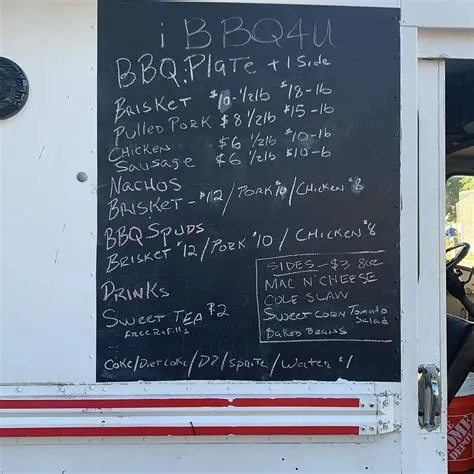 i BBQ4U
BBQ: Plate + 1 Side
Brisket $10-1/2lb $18-lb
Pulled Pork $8 1/2lb $15-lb
Chicken $6 1/2lb $10-lb
Sausage $6 1/2lb $10-lb
Nachos
Brisket - $12/Pork $10/Chicken $8
BBQ Spuds
Brisket $12/Pork $10/Chicken $8
Drinks
Sweet Tea $2
Free Refills
Coke/Diet Coke/DP/Sprite/Water $1
Sides - $3 8oz
Mac N' Cheese
Cole Slaw
Sweet Corn Tomato
Salad
Baked Beans
THE
HOME
DEPOT